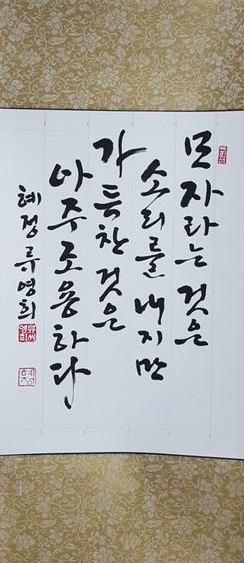 모자라는 것은
소리를 내지만
가득찬 것은
아주 조용하다
혜정 류영희